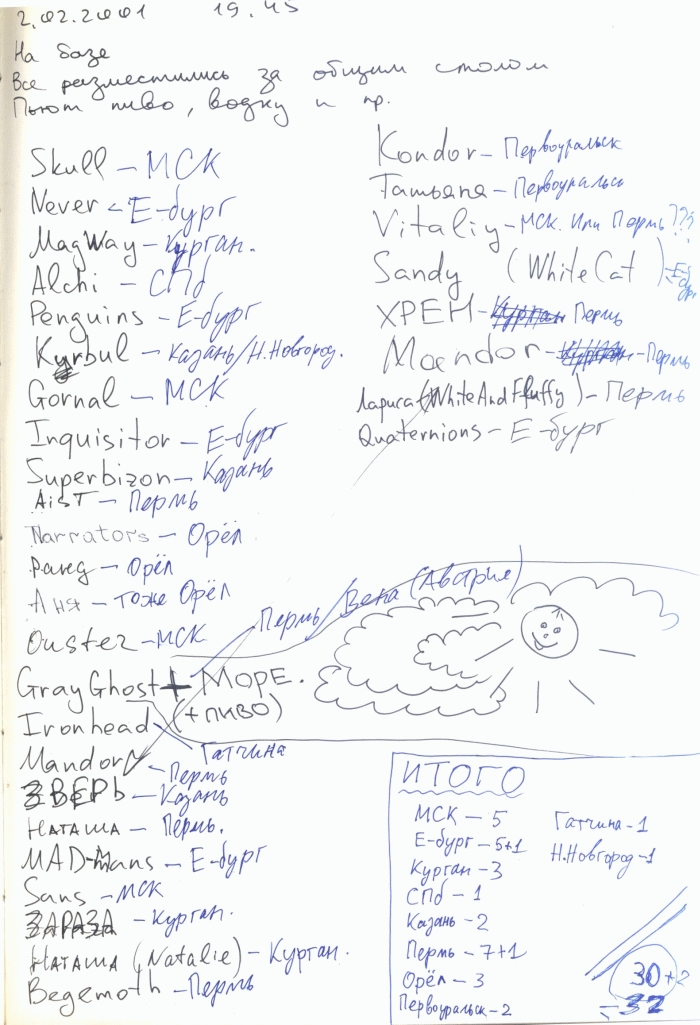 2.02.2001 19.45
На базе
Все разместились за общим столом
Пьют пиво, водку и пр.
Skull – МСК
Never – Е-бург
MagWay – Курган.
Alchi – СПб
Penguins – Е-бург
Kyrbul – Казань/Н.Новгород.
Gornal – МСК
Inquisitor – Е-бург
Superbizon – Казань
AiST – Пермь
Narrators – Орёл
Ранд – Орёл
Аня – тоже Орёл
Ouster – МСК
GrayGhost + МОРЕ. Пермь/Вена (Австрия)
(+ПИВО)
Ironhead Гатчина
Mandor – Пермь
ЗВЕРЬ – Казань
Наташа – Пермь.
MAD-mans – Е-бург
Sans – МСК
ЗАРАЗА – Курган.
Наташа (Natalie) – Курган.
Begemoth – Пермь
Kondor – Первоуральск
Татьяна – Первоуральск
Vitaliy – МСК. Или Пермь???
Sandy (WhiteCat)
ХРЕН – Курган Пермь
Maendor – Курган – Пермь
Лариса (WhiteAndFluffy) – Пермь
Quaternions – Е-бург
ИТОГО
МСК – 5
Е-бург – 5+1
Курган – 3
СПб – 1
Казань – 2
Пермь – 7+1
Орёл – 3
Первоуральск – 2
Гатчина – 1
Н.Новгород – 1
30+2
=32